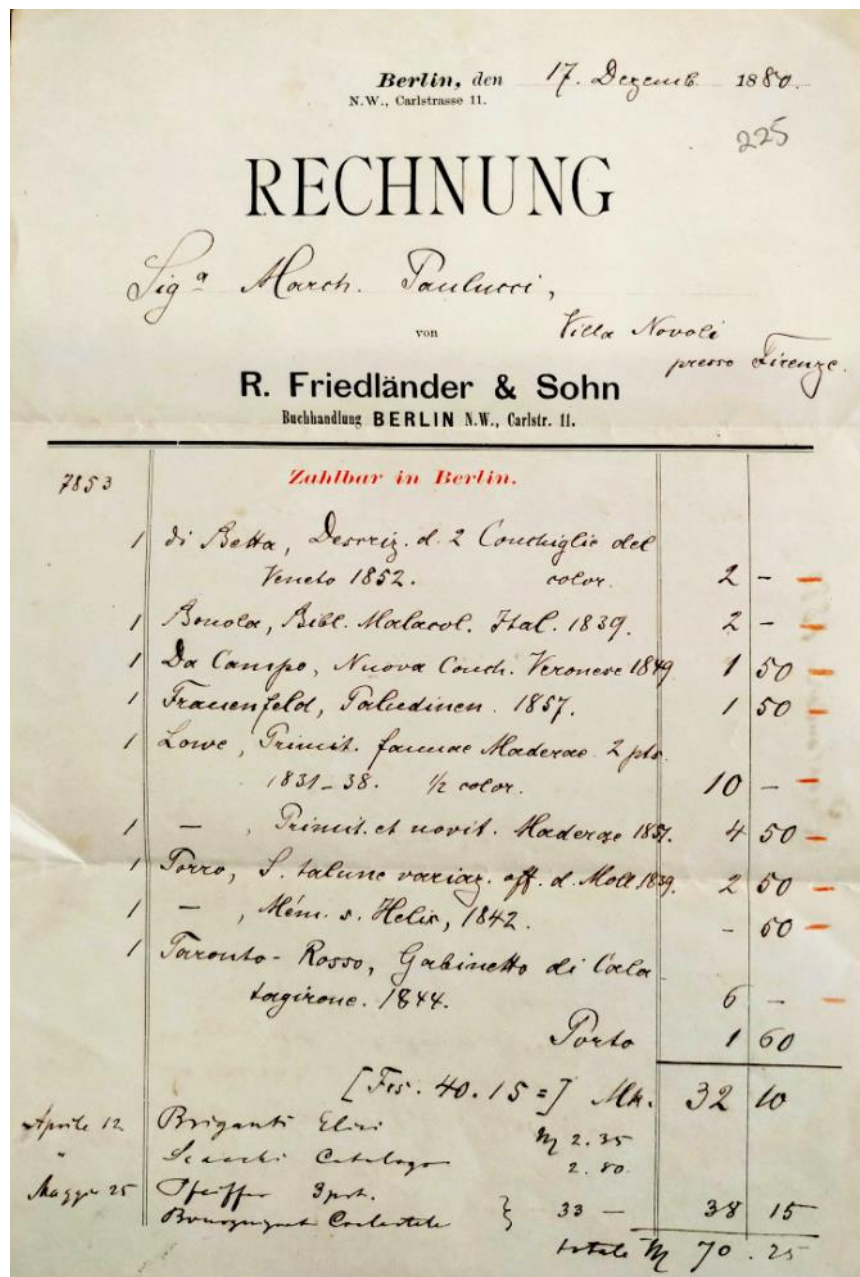 Berlin, den 17. Dezemb. 1880.
N.W., Carlstrasse 11.
225
RECHNUNG
Sigª March. Paulucci,
von Villa Novoli
presso Firenze.
R. Friedländer & Sohn
Buchhandlung BERLIN N.W., Carlstr. 11.
7853 Zahlbar in Berlin.
1 di Betta, Descriz. d. 2 Conchiglie del
Veneto 1852. color. 2 -
1 Bonola, Bibl. Malacol. Ital. 1839. 2 -
1 Da Campo, Nuova Conch. Veronese 1849 1 50
1 Frauenfeld, Paludinen. 1857. 1 50
1 Lowe, Primit. faunae Maderae 2 pts.
1831-38. ½ color. 10 -
1 — , Primit. et novit. Maderae 1851. 4 50
1 Porro, S. talune variaz. off. d. Moll 1839. 2 50
1 — , Mém. s. Helix, 1842. - 50
1 Taranto-Rosso, Gabinetto di Cala
tagirone. 1844. 6 -
Porto 1 60
[Frs. 40.15 =] Mk. 32 10
Aprile 12 Briganti Elici M 2.35
" Scacchi Catalogo 2.80
Maggio 25 Pfeiffer 3 prt.
Bourguignat } 33 — 38 15
totale M 70.25